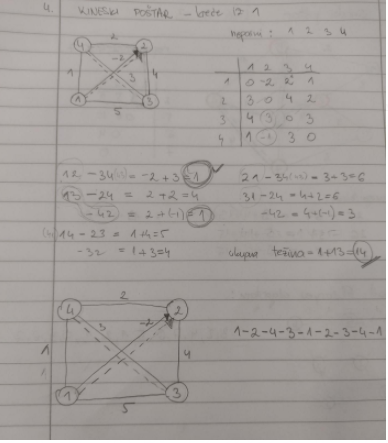 4. KINESKI POŠTAR - kreće iz 1
neparni : 1 2 3 4
4 2 2
-2
1 3 4
1 5 3
1 2 3 4
1 0 -2 2 1
2 3 0 4 2
3 4 3 0 3
4 1 -1 3 0
12 - 34 = -2 + 3 = 1
21 - 34 = 3+3=6
13 - 24 = 2 + 2 = 4
31 - 24 = 4+2=6
-42 = 2 + (-1) = 1
-42 = 4+(-1) = 3
14 - 23 = 1+4=5
-32 = 1+3=4
ukupna težina = 1+13=14
4 2 2
3 -2
1 4
1 5 3
1-2-4-3-1-2-3-4-1